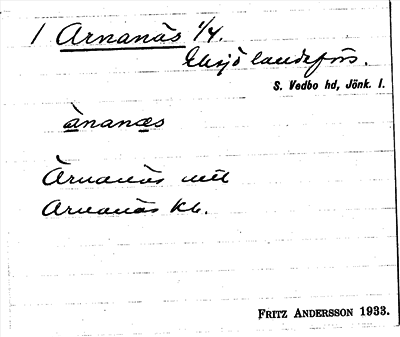 1 Arnanäs 1/4.
Eksjö landsförs.
S. Vedbo hd, Jönk. l.
ànanæs
Àrnanäs mtl
Arnanäs Kb.
FRITZ ANDERSSON 1933.